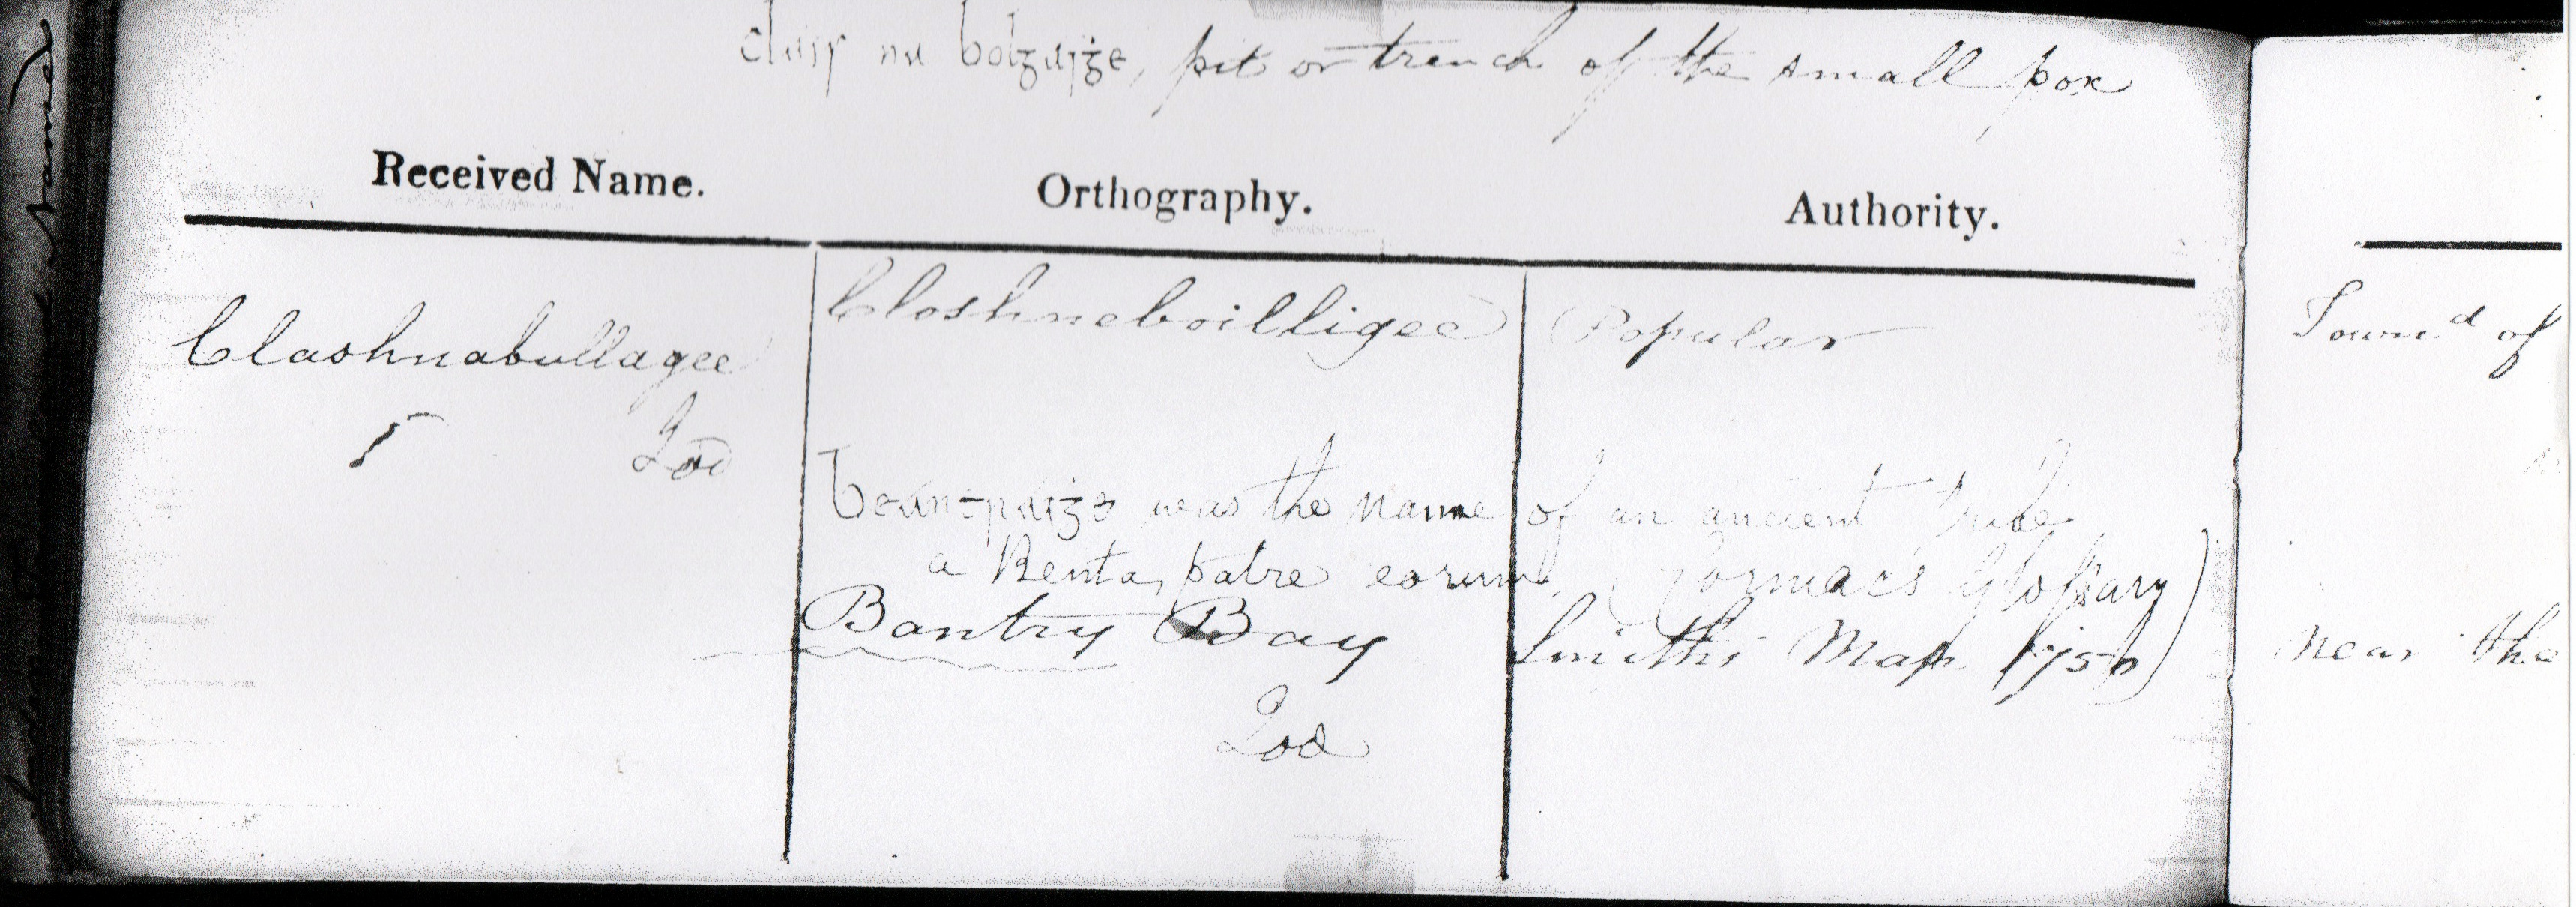 clais na bolgaiġe, pit or trench of the small pox
Received Name. Orthography. Authority.
Clashnabullagee Closhneboilligee Popular
Townd of
Beanтraiġe was the name of an ancient tribe
a Benta, patre eorum. (Cormac's Glossary)
Bantry Bay Smith's Map 1750
near the